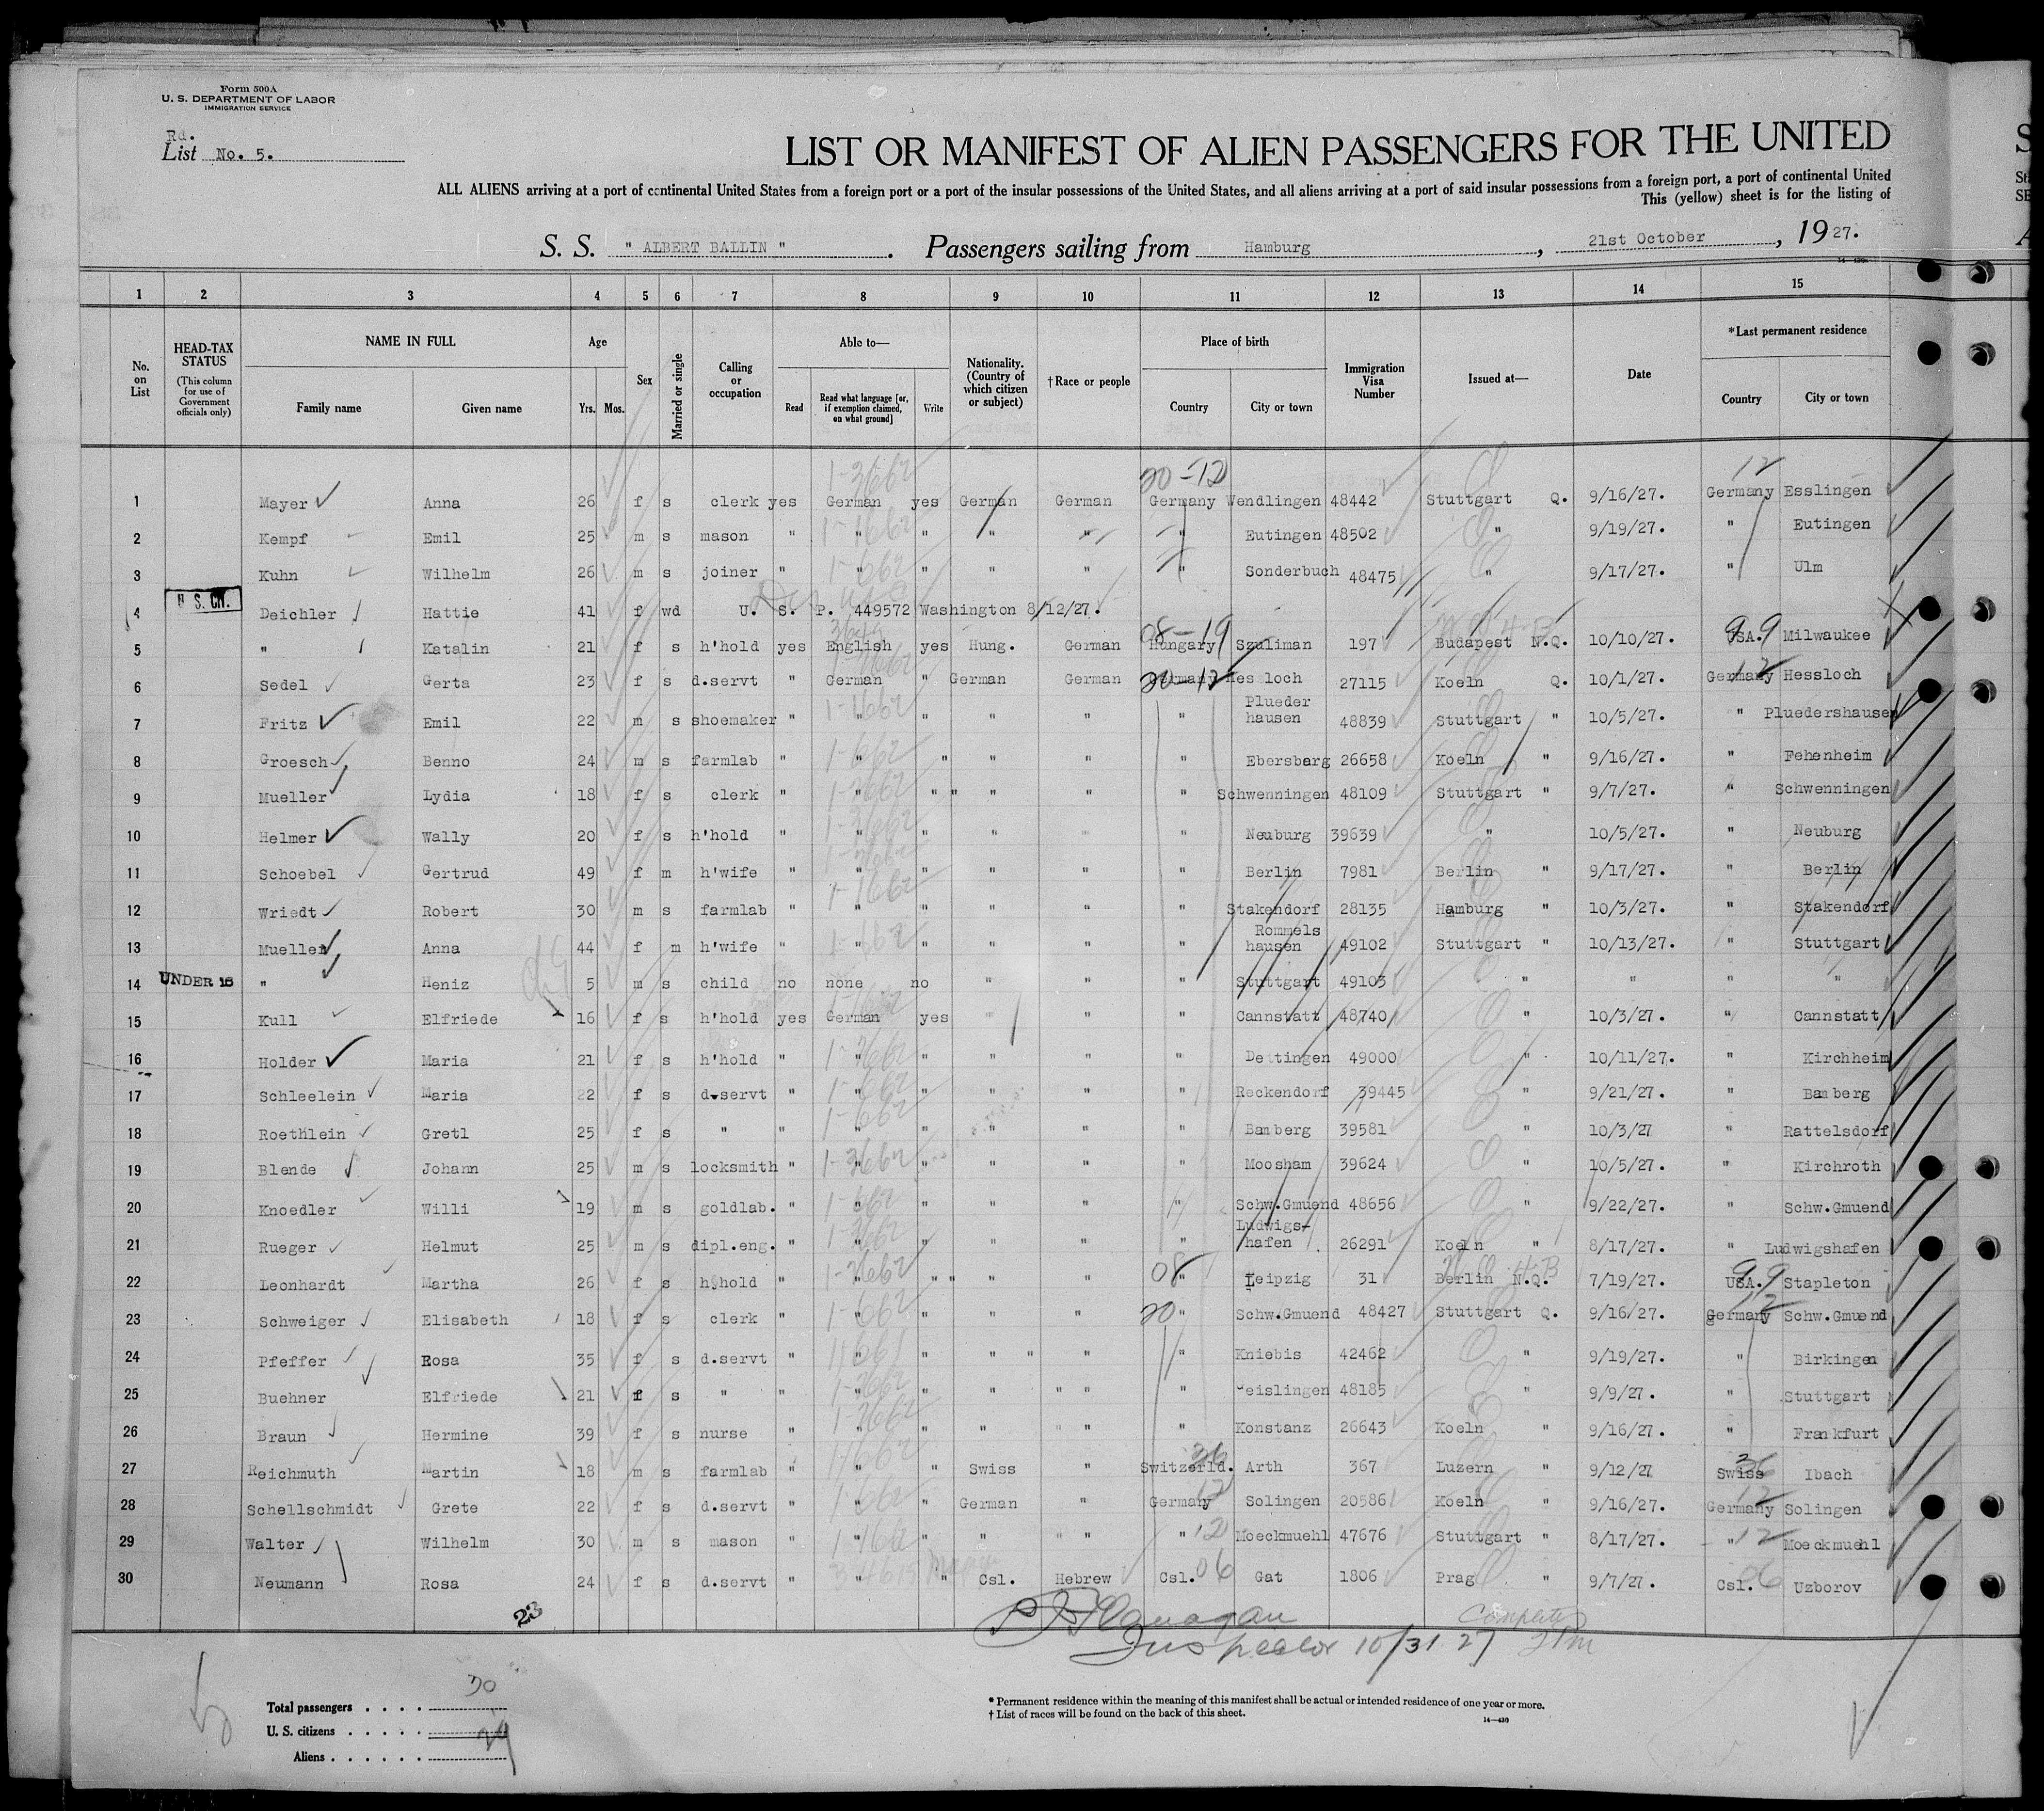 Form 500A
U. S. DEPARTMENT OF LABOR
IMMIGRATION SERVICE
Rd.
List No. 5.
LIST OR MANIFEST OF ALIEN PASSENGERS FOR THE UNITED
ALL ALIENS arriving at a port of continental United States from a foreign port or a port of the insular possessions of the United States, and all aliens arriving at a port of said insular possessions from a foreign port, a port of continental United
This (yellow) sheet is for the listing of
S. S. " ALBERT BALLIN " . Passengers sailing from Hamburg , 21st October , 1927.
1 2 3 4 5 6 7 8 9 10 11 12 13 14 15
No. on List
HEAD-TAX STATUS (This column for use of Government officials only)
NAME IN FULL Family name Given name
Age Yrs. Mos.
Sex
Married or single
Calling or occupation
Able to— Read Read what language [or, if exemption claimed, on what ground] Write
Nationality. (Country of which citizen or subject)
†Race or people
Place of birth Country City or town
Immigration Visa Number
Issued at—
Date
*Last permanent residence Country City or town
20-12 12
1 Mayer Anna 26 f s clerk yes German yes German German Germany Wendlingen 48442 Stuttgart Q. 9/16/27. Germany Esslingen
2 Kempf Emil 25 m s mason " " " " " " Eutingen 48502 " 9/19/27. " Eutingen
3 Kuhn Wilhelm 26 m s joiner " " " " " " Sonderbuch 48475 " 9/17/27. " Ulm
4 Deichler Hattie 41 f wd U. S. P. 449572 Washington 8/12/27.
08-19 99
5 " Katalin 21 f s h'hold yes English yes Hung. German Hungary Szuliman 197 Budapest N.Q. 10/10/27. USA. Milwaukee
6 Sedel Gerta 23 f s d.servt " German " German German Germany Hessloch 27115 Koeln Q. 10/1/27. Germany Hessloch
7 Fritz Emil 22 m s shoemaker " " " " " " Plueder hausen 48839 Stuttgart " 10/5/27. " Pluedershausen
8 Groesch Benno 24 m s farmlab " " " " " " Ebersbarg 26658 Koeln " 9/16/27. " Fehenheim
9 Mueller Lydia 18 f s clerk " " " " " " " Schwenningen 48109 Stuttgart " 9/7/27. " Schwenningen
10 Helmer Wally 20 f s h'hold " " " " " " Neuburg 39639 " 10/5/27. " Neuburg
11 Schoebel Gertrud 49 f m h'wife " " " " " " Berlin 7981 Berlin " 9/17/27. " Berlin
12 Wriedt Robert 30 m s farmlab " " " " " " Stakendorf 28135 Hamburg " 10/3/27. " Stakendorf
13 Mueller Anna 44 f m h'wife " " " " " " Rommels hausen 49102 Stuttgart " 10/13/27. " Stuttgart
14 UNDER 16 " Heniz 5 m s child no none no " " " Stuttgart 49103 " " " "
15 Kull Elfriede 16 f s h'hold yes German yes " " " Cannstatt 48740 " 10/3/27. " Cannstatt
16 Holder Maria 21 f s h'hold " " " " " " Dettingen 49000 " 10/11/27. " Kirchheim
17 Schleelein Maria 22 f s d.servt " " " " " " Reckendorf 39445 " 9/21/27. " Bamberg
18 Roethlein Gretl 25 f s " " " " " " " Bamberg 39581 " 10/3/27 " Rattelsdorf
19 Blende Johann 25 m s locksmith " " " " " " Moosham 39624 " 10/5/27. " Kirchroth
20 Knoedler Willi 19 m s goldlab. " " " " " " Schw.Gmuend 48656 " 9/22/27. " Schw.Gmuend
21 Rueger Helmut 25 m s dipl.eng. " " " " " " Ludwigs-hafen 26291 Koeln " 8/17/27. " Ludwigshafen
22 Leonhardt Martha 26 f s h'hold " " " " " " " Leipzig 31 Berlin N.Q. 7/19/27. USA. Stapleton
23 Schweiger Elisabeth 18 f s clerk " " " " " " Schw.Gmuend 48427 Stuttgart Q. 9/16/27. Germany Schw.Gmuend
24 Pfeffer Rosa 35 f s d.servt " " " " " " " Kniebis 42462 " 9/19/27. " Birkingen
25 Buehner Elfriede 21 f s " " " " " " " " Geislingen 48185 " 9/9/27. " Stuttgart
26 Braun Hermine 39 f s nurse " " " " " " " Konstanz 26643 Koeln " 9/16/27. " Frankfurt
27 Reichmuth Martin 18 m s farmlab " " " Swiss " Switzerld. Arth 367 Luzern " 9/12/27 Swiss Ibach
28 Schellschmidt Grete 22 f s d.servt " " " German " Germany Solingen 20586 Koeln " 9/16/27. Germany Solingen
29 Walter Wilhelm 30 m s mason " " " " " " " Moeckmuehl 47676 Stuttgart " 8/17/27. " Moeckmuehl
30 Neumann Rosa 24 f s d.servt " " " Csl. Hebrew Csl. Gat 1806 Prag " 9/7/27. Csl. Uzborov
23
Flanagan
Inspector 10/31 27
Total passengers . . . . 30
U. S. citizens . . . . .
Aliens . . . . . . 29
* Permanent residence within the meaning of this manifest shall be actual or intended residence of one year or more.
† List of races will be found on the back of this sheet.
14—430